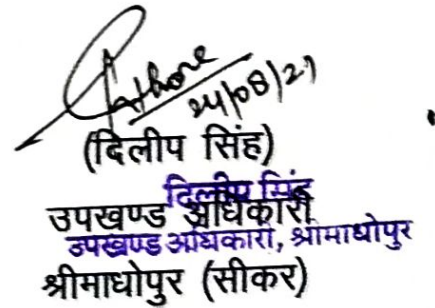 24/08/21
(दिलीप सिंह)
दिलीप सिंह
उपखण्ड अधिकारी
उपखण्ड अधिकारी, श्रीमाधोपुर
श्रीमाधोपुर (सीकर)